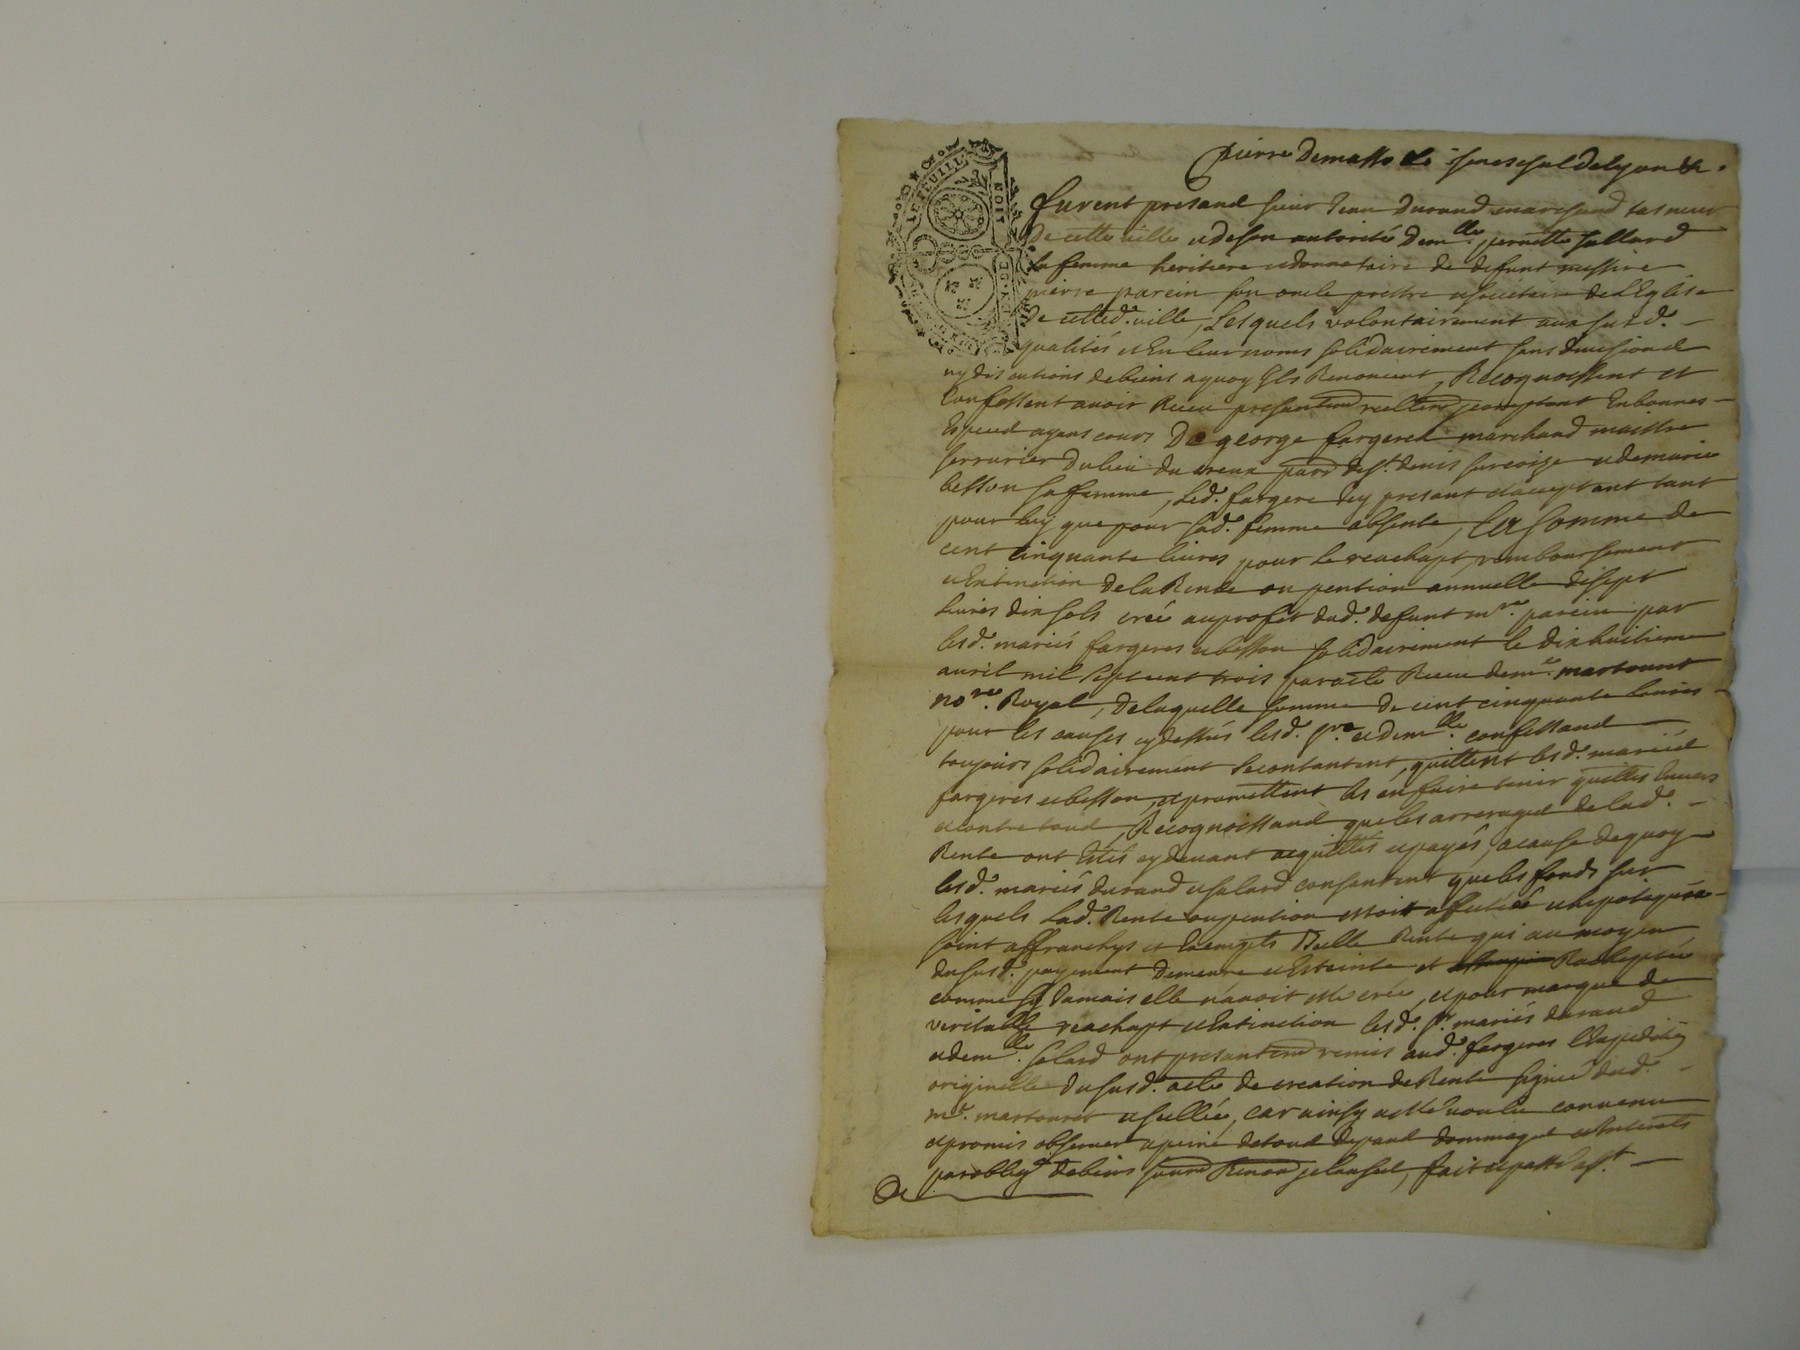 pierre Demasso seneschal de lyon &c.
LE FEUILL
furent presand sieur Jean Durand marchand taneur
de cette ville et de son autorité dem.lle pernette sallard
sa femme heritiere et donnataire de defunt messire
pierre parein son oncle prestre et societaire de L'Eglise
de cetted. ville, Lesquels volontairement aux susd.
qualités et En leur noms solidairement sans division
ny discutions de biens a quoy Ils Renoncent, Recognoissent et
Confessent avoir Receu presantem.d reellem.d et comptant En bonnes
Especed ayans cours De george fargered marchand maistre
serrurier du lieu du creux par.d de S.t denis et de marie
besson sa femme, Led. fargere Icy presant et acceptant tant
pour luy que pour sad. femme absente, La somme de
cent cinquante livres pour le reachapt, remboursement
et Extinction de la Rente ou pention annuelle de sept
livres dix sols creé au profit dud. defunt m.re parein par
lesd. mariés fargeres et besson solidairement le dix huitieme
avril mil sept cent trois par acte Receu de m.e martouret
no.re Royal, de laquelle somme de cent cinquante livres
pour les causes cy dessus lesd. s.r et dem.lle confessand
toujours solidairement se contantent, quittent lesd. mariéd
fargeres et besson, et promettent les en faire tenir quittes Envers
et contre toud, Recognoissand que les arreraged de lad.
Rente ont Estés cy devant acquittés et payés, a cause de quoy
lesd. mariés durand et salard consentent que les fonds sur
lesquels Lad. Rente ou pention estoit affectée et hipotequée
soint affranchys et Exempts d'Icelle Rente qui au moyen
du susd. payement demeure et Esteinte et
comme sy Jamais elle n'avoit esté creé, et pour marque de
veritable reachapt et Extinction lesd. s.r mariés durand
et dem.lle salard ont presantem.d remis aud. fargeres L'Expedition
originelle du susd. acte de creation de Rente signée dud.
m.e martouret et sellée, car ainsy a esté voulu convenu
et promis observer a peine de toud depand dommaged et Interets
par oblig.on de biens soumd Renond et clausesd, fait et passé a S.t